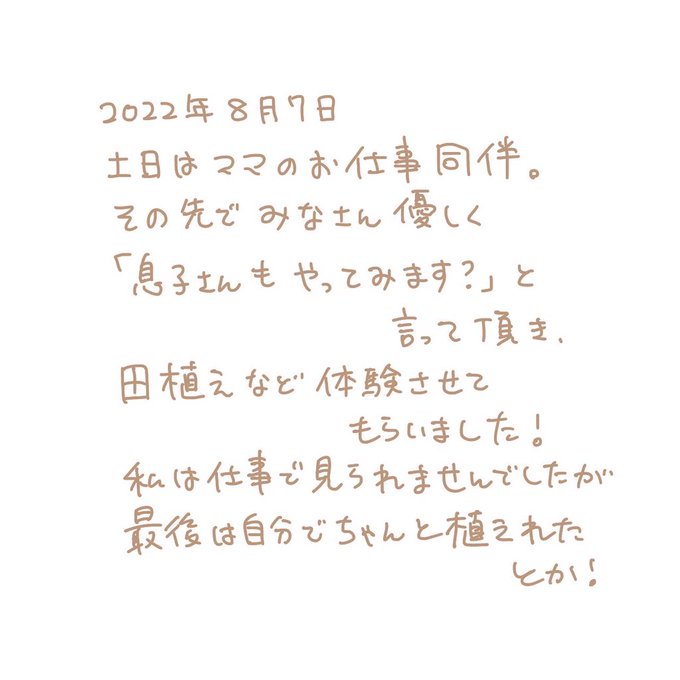 2022年8月7日
土日はママのお仕事同伴。
その先でみなさん優しく
「息子さんもやってみます?」と
言って頂き、
田植えなど体験させて
もらいました!
私は仕事で見られませんでしたが
最後は自分でちゃんと植えれた
とか!